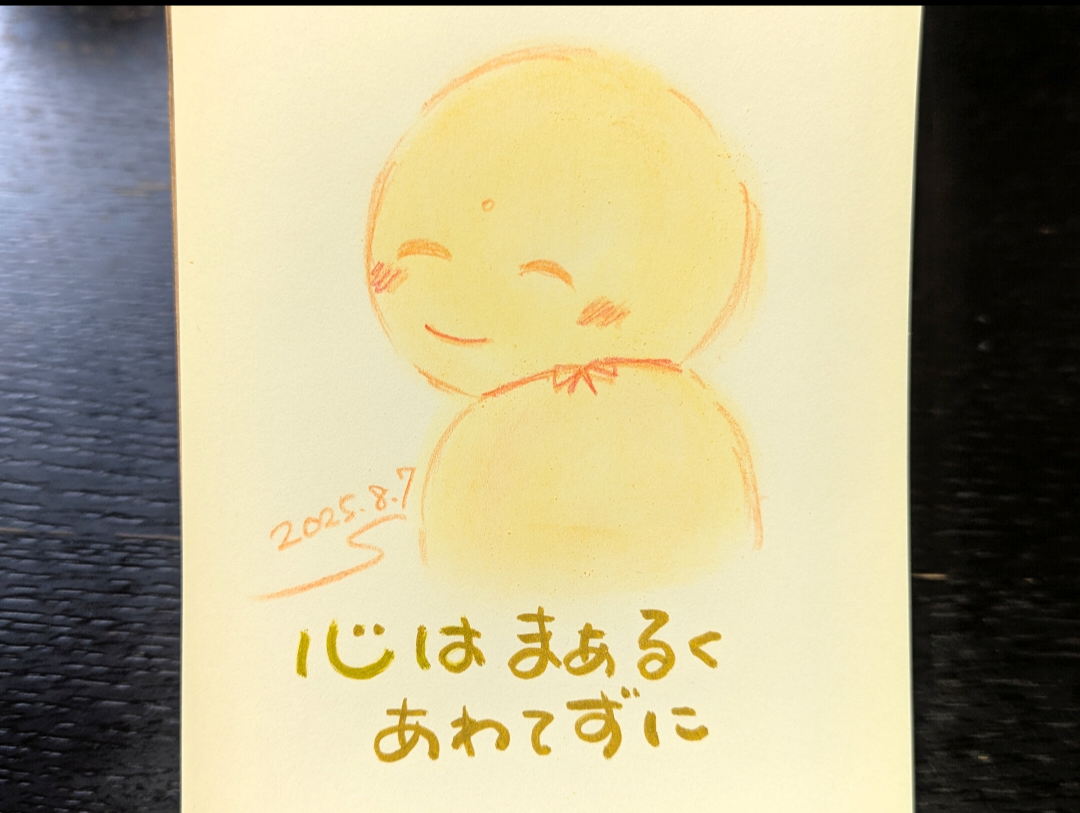 2025.8.7
心はまぁるく
あわてずに